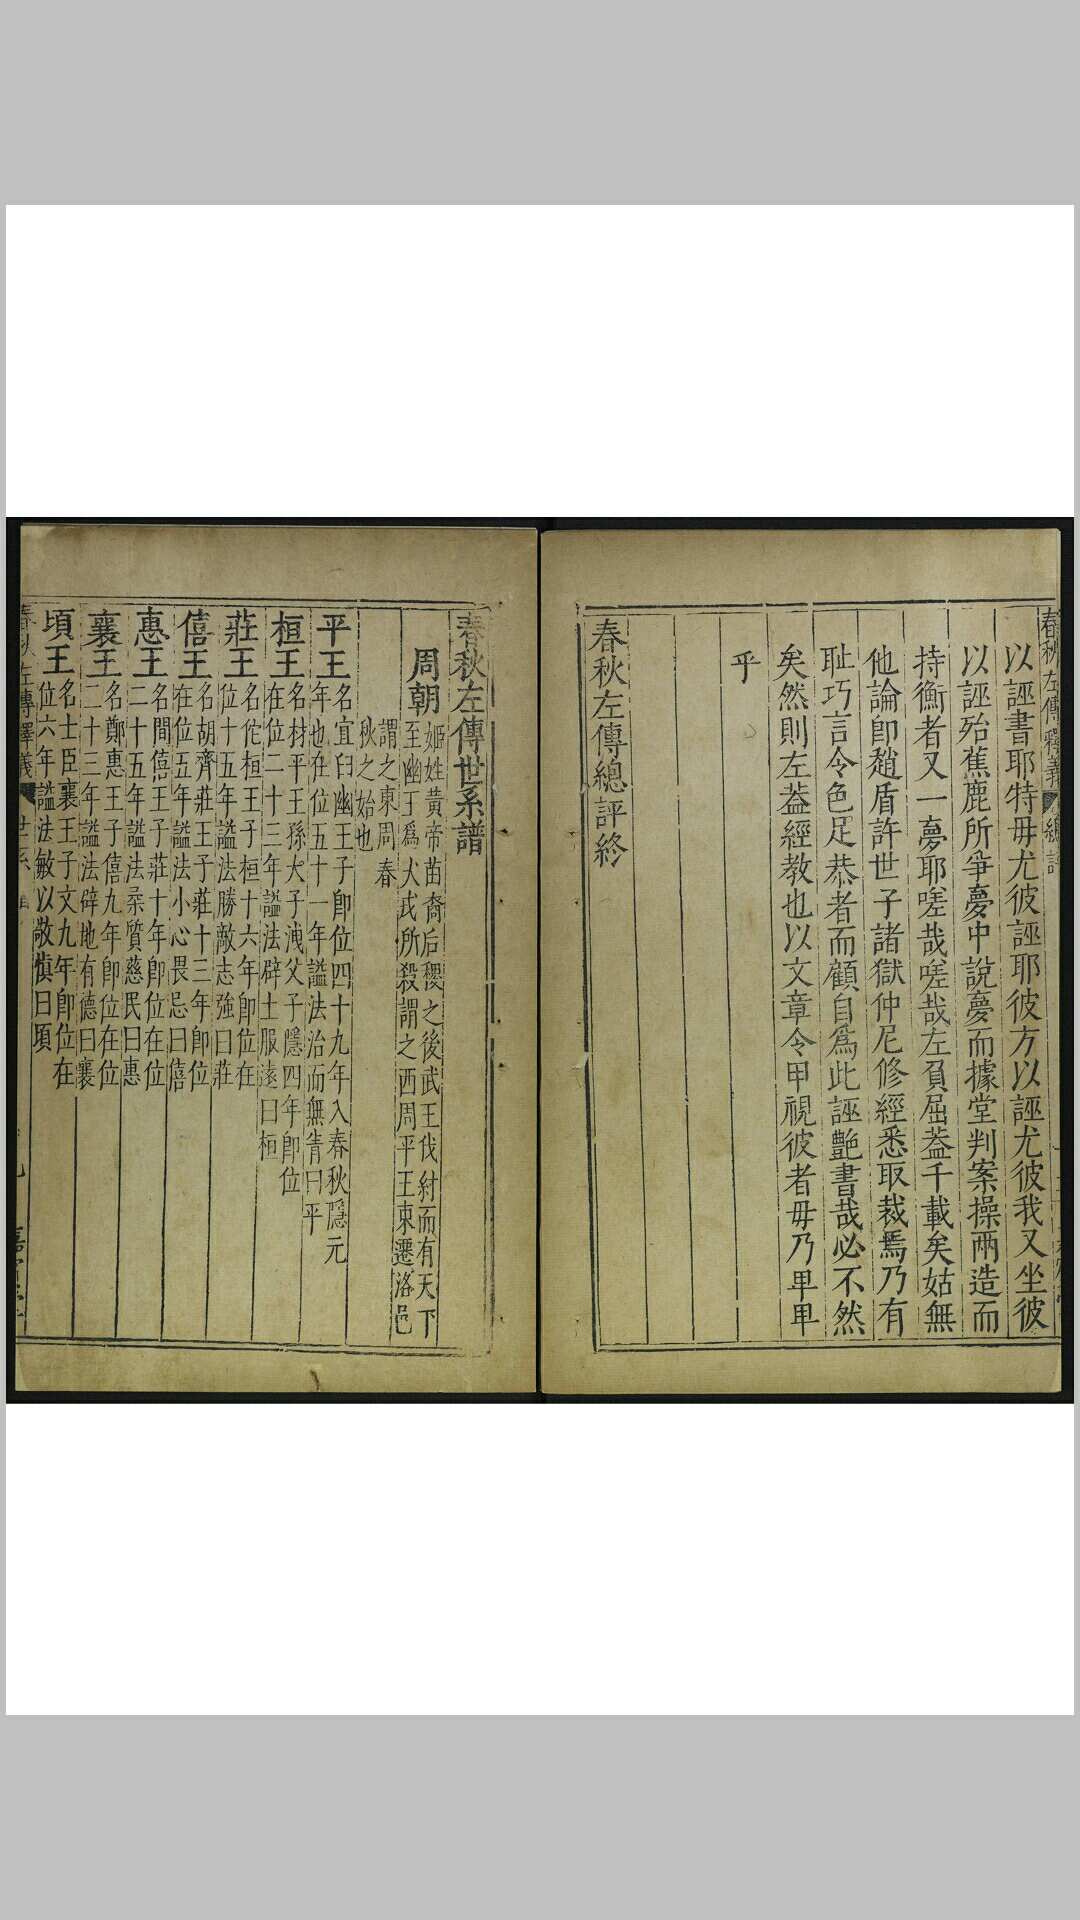 春秋左傳釋義 總評
以誣書耶特毋尤彼誣耶彼方以誣尤彼我又坐彼
以誣殆蕉鹿所爭夢中說夢而據堂判案操兩造而
持衡者又一夢耶嗟哉嗟哉左負屈葢千載矣姑無
他論卽趙盾許世子諸獄仲尼修經悉取裁焉乃有
耻巧言令色足恭者而顧自爲此誣艶書哉必不然
矣然則左葢經教也以文章令甲視彼者毋乃卑卑
乎
春秋左傳總評終
春秋左傳世系譜
周朝
姬姓黄帝苗裔后稷之後武王伐紂而有天下
至幽王爲犬戎所殺謂之西周平王東遷洛邑
謂之東周春
秋之始也
平王
名宜臼幽王子卽位四十九年入春秋隱元
年也在位五十一年謚法治而無眚曰平
桓王
名林平王孫大子洩父子隱四年卽位
在位二十三年謚法辟土服遠曰桓
莊王
名佗桓王子桓十六年卽位在
位十五年謚法勝敵志強曰莊
僖王
名胡齊莊王子莊十三年卽位
在位五年謚法小心畏忌曰僖
惠王
名閬僖王子莊十年卽位在位
二十五年謚法柔質慈民曰惠
襄王
名鄭惠王子僖九年卽位在位
二十三年謚法辟地有德曰襄
頃王
名士臣襄王子文九年卽位在
位六年謚法敏以敬慎曰頃
春秋左傳釋義 世系